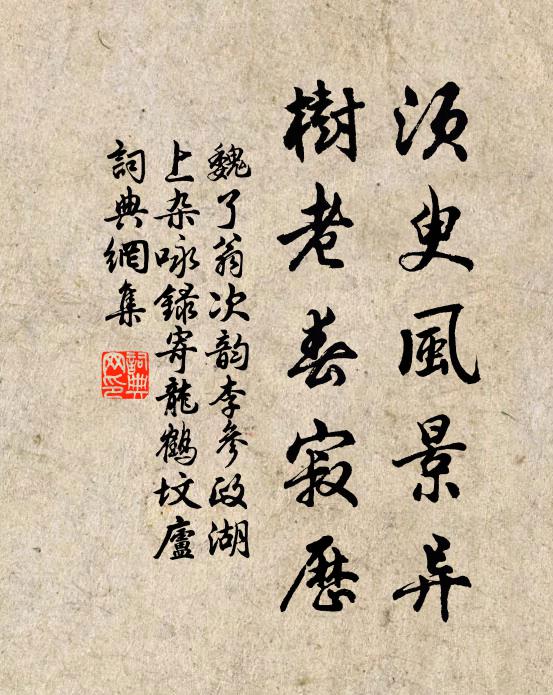 须臾風景异
樹老春寂歷
魏了翁次韵李參政湖
上杂咏録寄龍鶴坟廬
詞典網集
詞典
网印